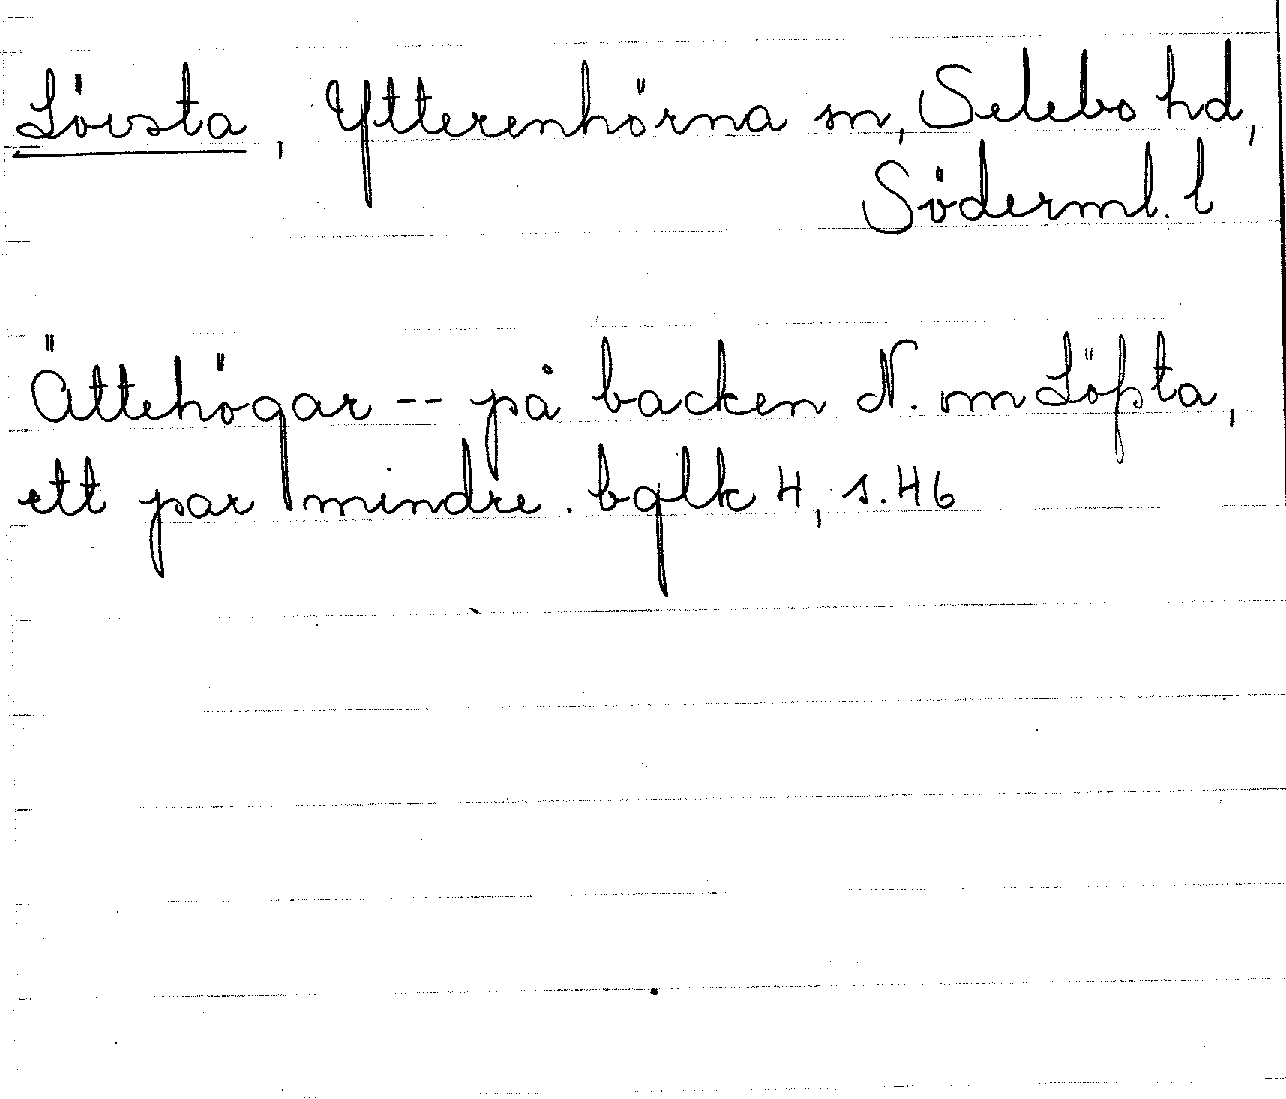 Lövsta, Ytterenhörna sn, Selebo hd,
Söderml. l
Ättehögar -- på backen N. om Löpsta,
ett par mindre. bglk 4, s. 46